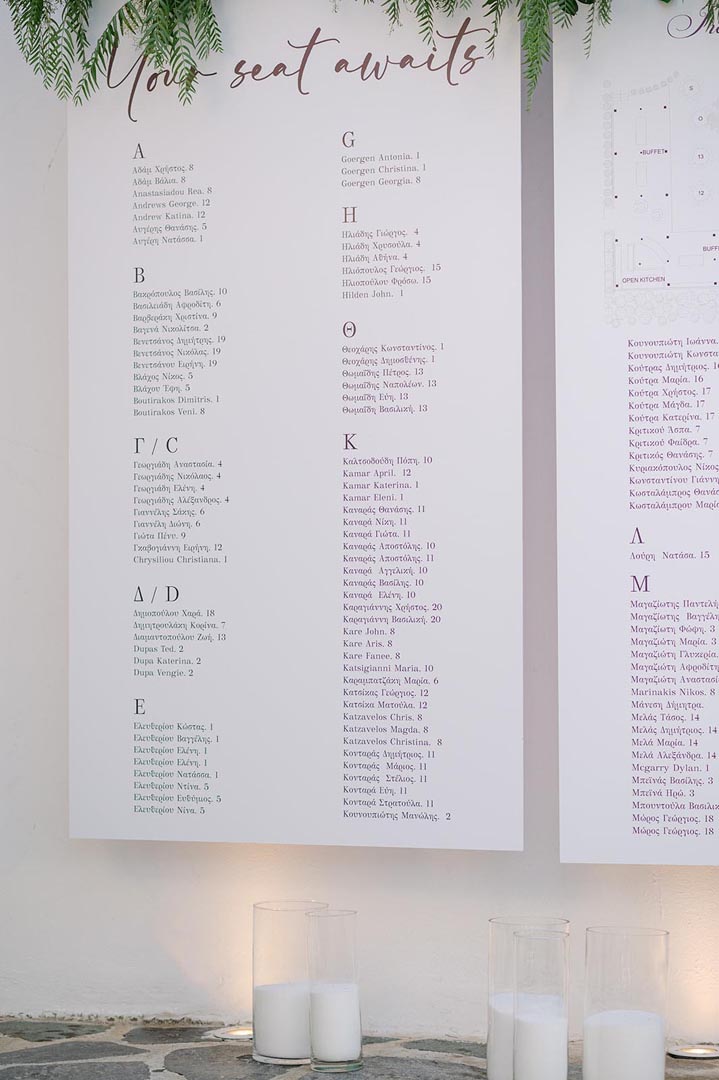 Your seat awaits
Α
Αδάμ Χρήστος. 8
Αδάμ Βάλια. 8
Anastasiadou Rea. 8
Andrews George. 12
Andrew Katina. 12
Αυγέρης Θανάσης. 5
Αυγέρη Νατάσσα. 1
Β
Βακρόπουλος Βασίλης. 10
Βασιλειάδη Αφροδίτη. 6
Βαρβεράκη Χριστίνα. 9
Βαγενά Νικολίτσα. 2
Βενετσάνος Δημήτρης. 19
Βενετσάνος Νικόλας. 19
Βενετσάνου Ειρήνη. 19
Βλάχος Νίκος. 5
Βλάχου Έφη. 5
Boutirakos Dimitris. 1
Boutirakos Veni. 8
Γ / C
Γεωργιάδη Αναστασία. 4
Γεωργιάδης Νικόλαος. 4
Γεωργιάδη Ελένη. 4
Γεωργιάδης Αλέξανδρος. 4
Γιαννέλης Σάκης. 6
Γιαννέλη Διώνη. 6
Γιώτα Πένυ. 9
Γκαβογιάννη Ειρήνη. 12
Chrysiliou Christiana. 1
Δ / D
Δημοπούλου Χαρά. 18
Δημητρουλάκη Κορίνα. 7
Διαμαντοπούλου Ζωή. 13
Dupas Ted. 2
Dupa Katerina. 2
Dupa Vengie. 2
Ε
Ελευθερίου Κώστας. 1
Ελευθερίου Βαγγέλης. 1
Ελευθερίου Ελένη. 1
Ελευθερίου Ελένη. 1
Ελευθερίου Νατάσσα. 1
Ελευθερίου Ντίνα. 5
Ελευθερίου Ευθύμιος. 5
Ελευθερίου Νίνα. 5
G
Goergen Antonia. 1
Goergen Christina. 1
Goergen Georgia. 8
Η
Ηλιάδης Γιώργος. 4
Ηλιάδη Χρυσούλα. 4
Ηλιάδη Αθήνα. 4
Ηλιόπουλος Γεώργιος. 15
Ηλιοπούλου Φρόσω. 15
Hilden John. 1
Θ
Θεοχάρης Κωνσταντίνος. 1
Θεοχάρης Δημοσθένης. 1
Θωμαΐδη Πέτρος. 13
Θωμαΐδης Ναπολέων. 13
Θωμαΐδη Εύη. 13
Θωμαΐδη Βασιλική. 13
Κ
Καλτσοδούδη Πόπη. 10
Kamar April. 12
Kamar Katerina. 1
Kamar Eleni. 1
Καναράς Θανάσης. 11
Καναρά Νίκη. 11
Καναρά Γιώτα. 11
Καναράς Αποστόλης. 10
Καναράς Αποστόλης. 10
Καναρά Αγγελική. 10
Καναράς Βασίλης. 10
Καναρά Ελένη. 10
Καραγιάννης Χρήστος. 20
Καραγιάννη Βασιλική. 20
Kare John. 8
Kare Aris. 8
Kare Fanee. 8
Katsigianni Maria. 10
Καραμπατζάκη Μαρία. 6
Κατσίκας Γεώργιος. 12
Κατσίκα Ματούλα. 12
Katzavelos Chris. 8
Katzavelos Magda. 8
Katzavelos Christina. 8
Κονταράς Δημήτρης. 11
Κονταράς Μάριος. 11
Κονταράς Στέλιος. 11
Κονταρά Εύη. 11
Κονταρά Στρατούλα. 11
Κουνουπιώτης Μανώλης. 2
S
O
BUFFET
13
12
BUFF
OPEN KITCHEN
Κουνουπιώτη Ιωάννα.
Κουνουπιώτη Κωνστα
Κούτρας Δημήτριος. 16
Κούτρα Μαρία. 16
Κούτρα Χρήστος. 17
Κούτρα Μάγδα. 17
Κούτρα Κατερίνα. 17
Κριτικού Άσπα. 7
Κριτικού Φαίδρα. 7
Κριτικός Θανάσης. 7
Κυριακόπουλος Νίκος
Κωνσταντίνου Γιάννη
Κωσταλάμπρος Θανάσ
Κωσταλάμπρου Μαρία
Λ
Λούρη Νατάσα. 15
Μ
Μαγαζιώτης Παντελή
Μαγαζιώτης Βαγγέλη
Μαγαζιώτη Φώφη. 3
Μαγαζιώτη Μαρία. 3
Μαγαζιώτη Γλυκερία.
Μαγαζιώτη Αφροδίτη
Μαγαζιώτη Αναστασί
Marinakis Nikos. 8
Μάνεση Δήμητρα.
Μελάς Τάσος. 14
Μελάς Δημήτριος. 14
Μελά Μαρία. 14
Μελά Αλεξάνδρα. 14
Mcgarry Dylan. 1
Μπεϊνάς Βασίλης. 3
Μπεϊνά Ηρώ. 3
Μπουντούλα Βασιλικ
Μώρος Γεώργιος. 18
Μώρος Γεώργιος. 18